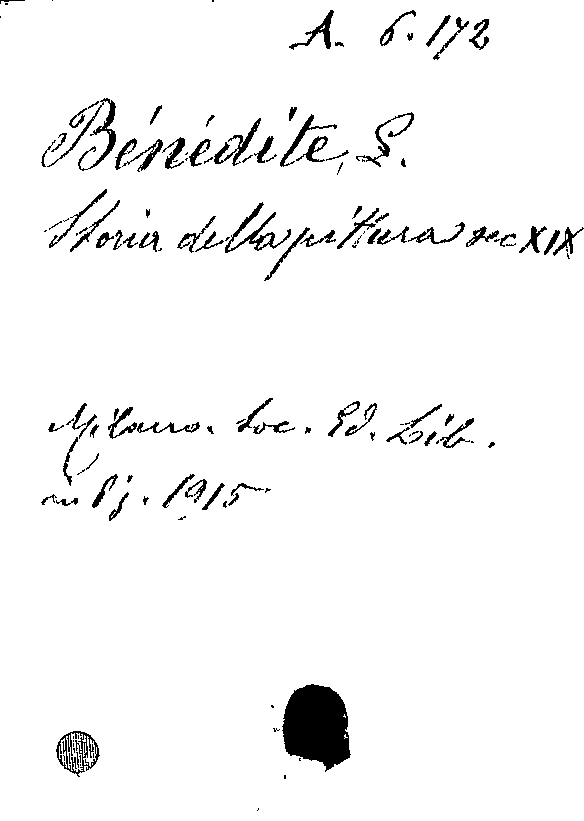 A. 6. 172
Bénédite, L.
Storia della pittura sec XIX
Milano. Soc. Ed. Lib.
in 8j. 1915